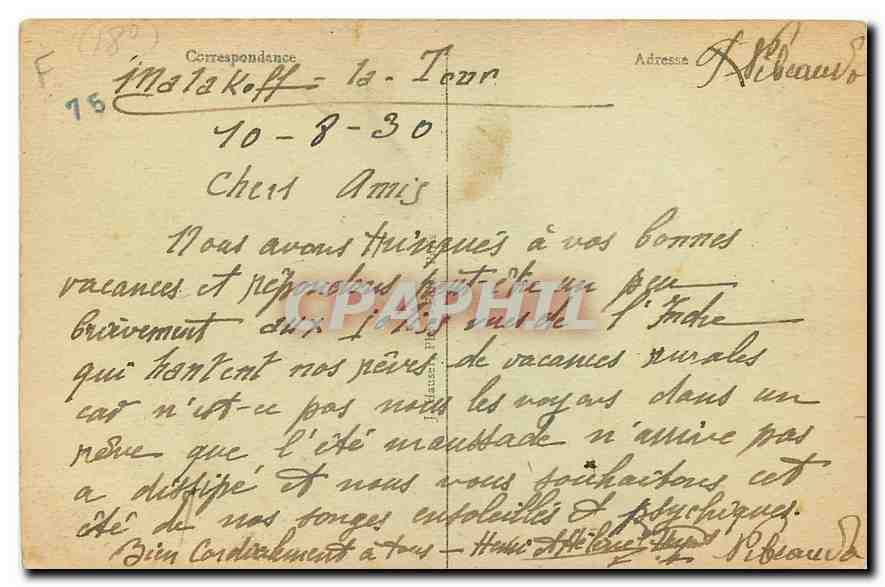 (180)
F
75
Correspondance
Adresse
Malakoff = la - Tour
10 - 8 - 30
Chers Amis
Nous avons trinqués à vos bonnes
vacances et répondons peut-être un peu
brièvement aux jolies vues de l'Indre
qui hantent nos rêves de vacances rurales
car n'est-ce pas nous les voyons dans un
rêve que l'été maussade n'arrive pas
a dissipé et nous vous souhaitons cet
été de nos songes ensoleillés et psychiques.
Bien Cordialement à tous - Henri et Hélène
CPAPHIL